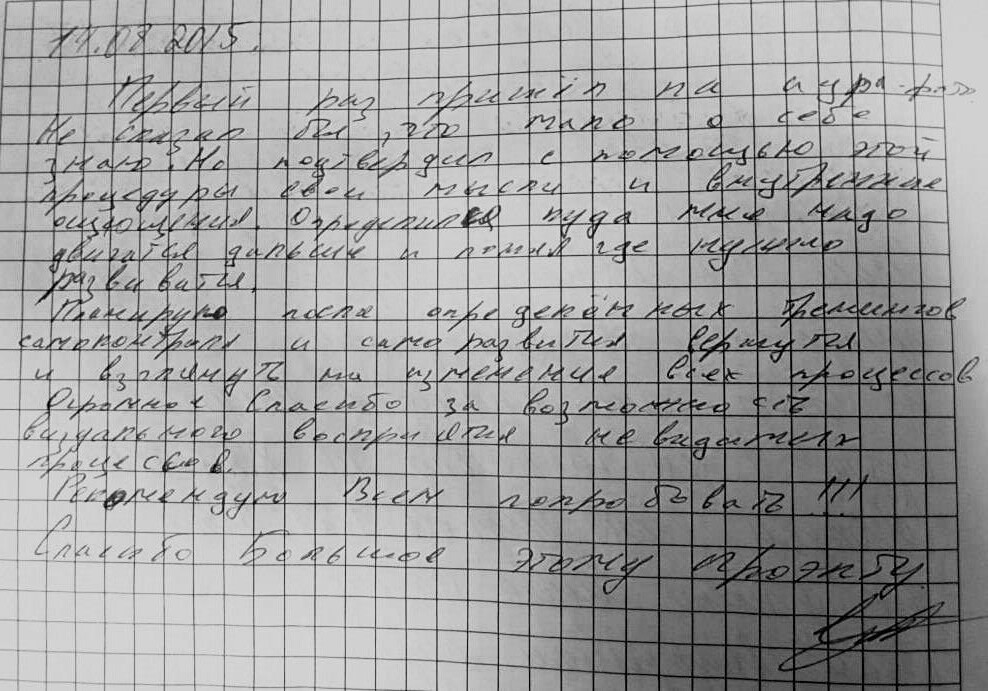 .08 2015.
Первый раз пришёл на аура-фото.
Не сказал бы, что мало о себе
знаю. Но подтвердил с помощью этой
процедуры свои мысли и внутренние
ощущения. Определился куда мне надо
двигатся дальше и понял где нужно
развиватся.
Планирую после определённых тренингов
самоконтроля и само развития вернутся
и взглянуть на изменения всех процессов
Огромное Спасибо за возможность
визуального восприятия невидимых
процессов.
Рекомендую Всем попробывать!!!
Спасибо Большое этому проэкту.